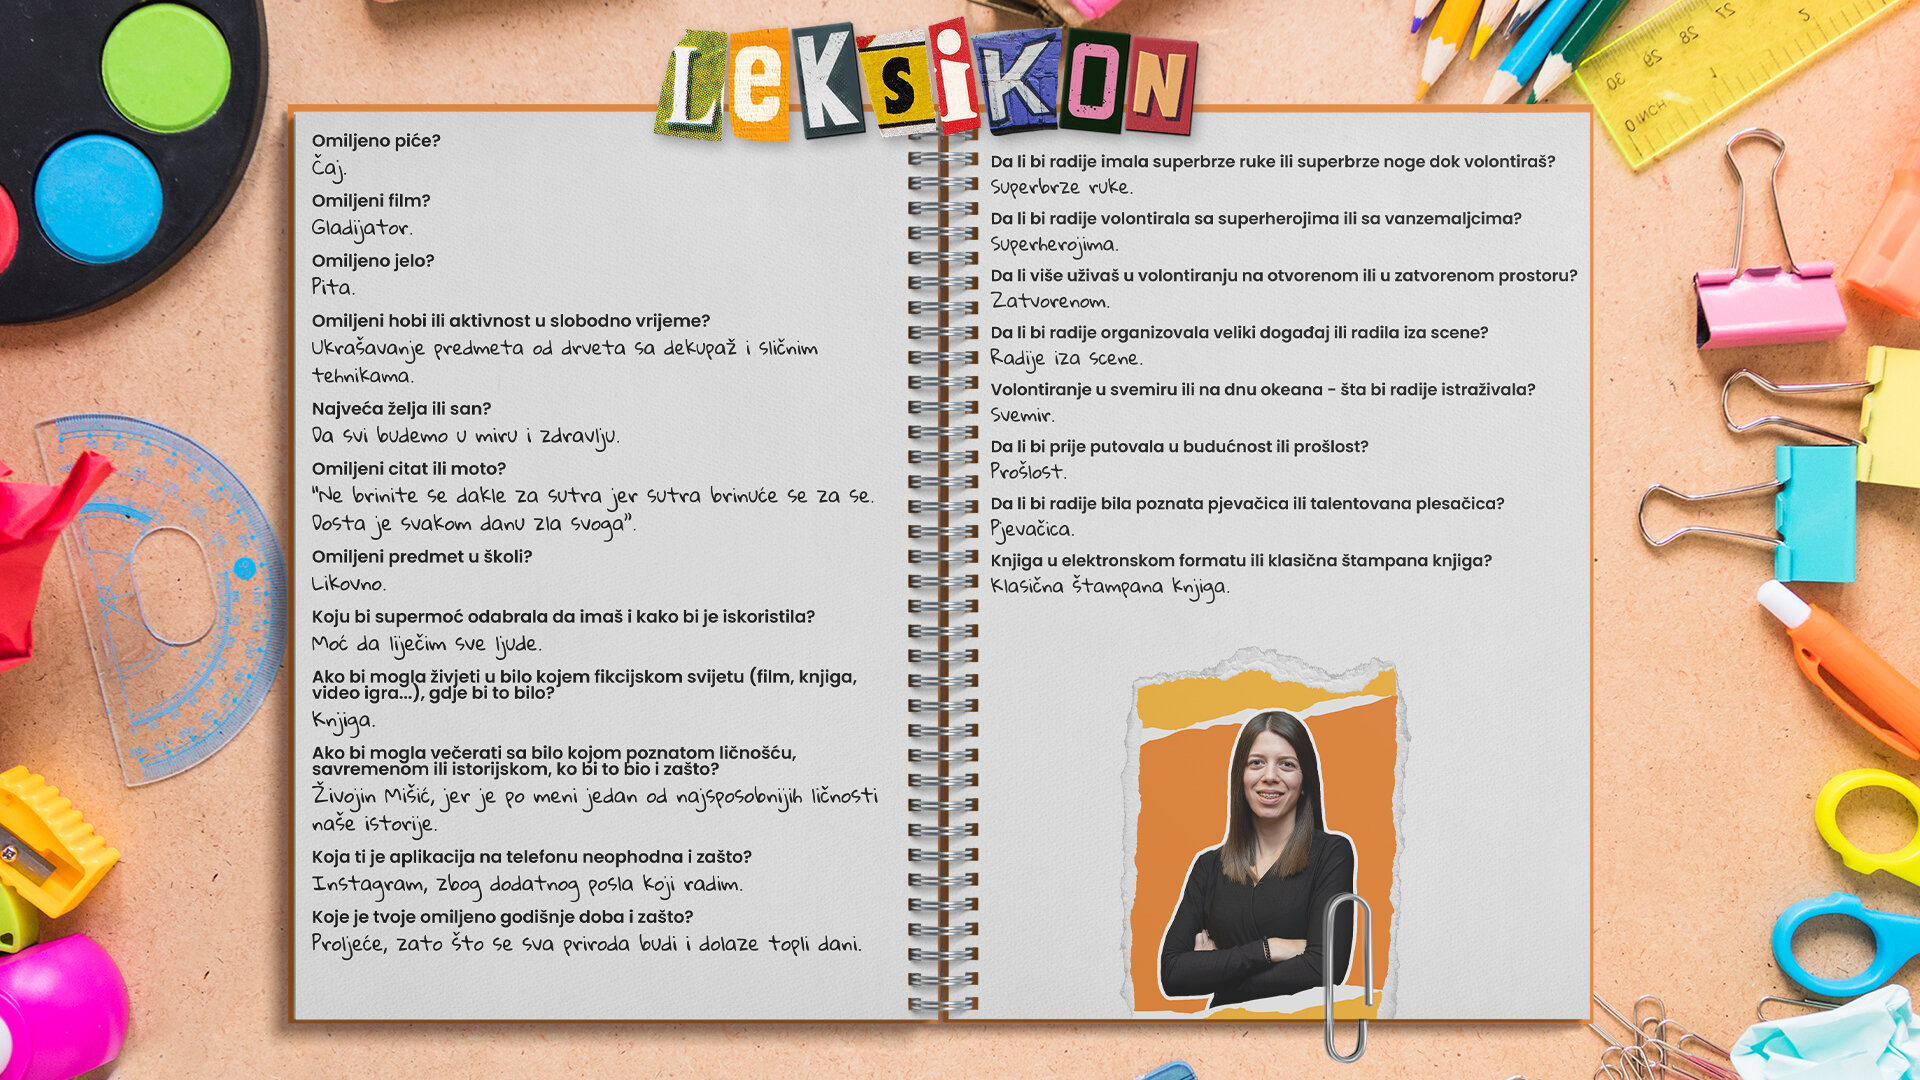 LEKSIKON
Omiljeno piće?
Čaj.
Omiljeni film?
Gladijator.
Omiljeno jelo?
Pita.
Omiljeni hobi ili aktivnost u slobodno vrijeme?
Ukrašavanje predmeta od drveta sa dekupaž i sličnim
tehnikama.
Najveća želja ili san?
Da svi budemo u miru i zdravlju.
Omiljeni citat ili moto?
"Ne brinite se dakle za sutra jer sutra brinuće se za se.
Dosta je svakom danu zla svoga".
Omiljeni predmet u školi?
Likovno.
Koju bi supermoć odabrala da imaš i kako bi je iskoristila?
Moć da liječim sve ljude.
Ako bi mogla živjeti u bilo kojem fikcijskom svijetu (film, knjiga,
video igra...), gdje bi to bilo?
Knjiga.
Ako bi mogla večerati sa bilo kojom poznatom ličnošću,
savremenom ili istorijskom, ko bi to bio i zašto?
Živojin Mišić, jer je po meni jedan od najsposobnijih ličnosti
naše istorije.
Koja ti je aplikacija na telefonu neophodna i zašto?
Instagram, zbog dodatnog posla koji radim.
Koje je tvoje omiljeno godišnje doba i zašto?
Proljeće, zato što se sva priroda budi i dolaze topli dani.
Da li bi radije imala superbrze ruke ili superbrze noge dok volontiraš?
Superbrze ruke.
Da li bi radije volontirala sa superherojima ili sa vanzemaljcima?
Superherojima.
Da li više uživaš u volontiranju na otvorenom ili u zatvorenom prostoru?
Zatvorenom.
Da li bi radije organizovala veliki događaj ili radila iza scene?
Radije iza scene.
Volontiranje u svemiru ili na dnu okeana - šta bi radije istraživala?
Svemir.
Da li bi prije putovala u budućnost ili prošlost?
Prošlost.
Da li bi radije bila poznata pjevačica ili talentovana plesačica?
Pjevačica.
Knjiga u elektronskom formatu ili klasična štampana knjiga?
Klasična štampana knjiga.